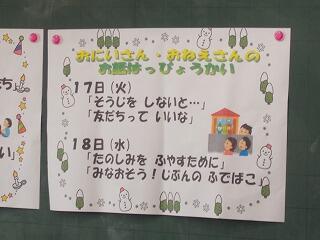 おにいさん・おねえさんの
お話はっぴょうかい
17日(火)
「そうじを しないと…」
「友だちって いいな」
18日(水)
「たのしみを ふやすために」
「みなおそう!じぶんの ふでばこ」
ち」
い」